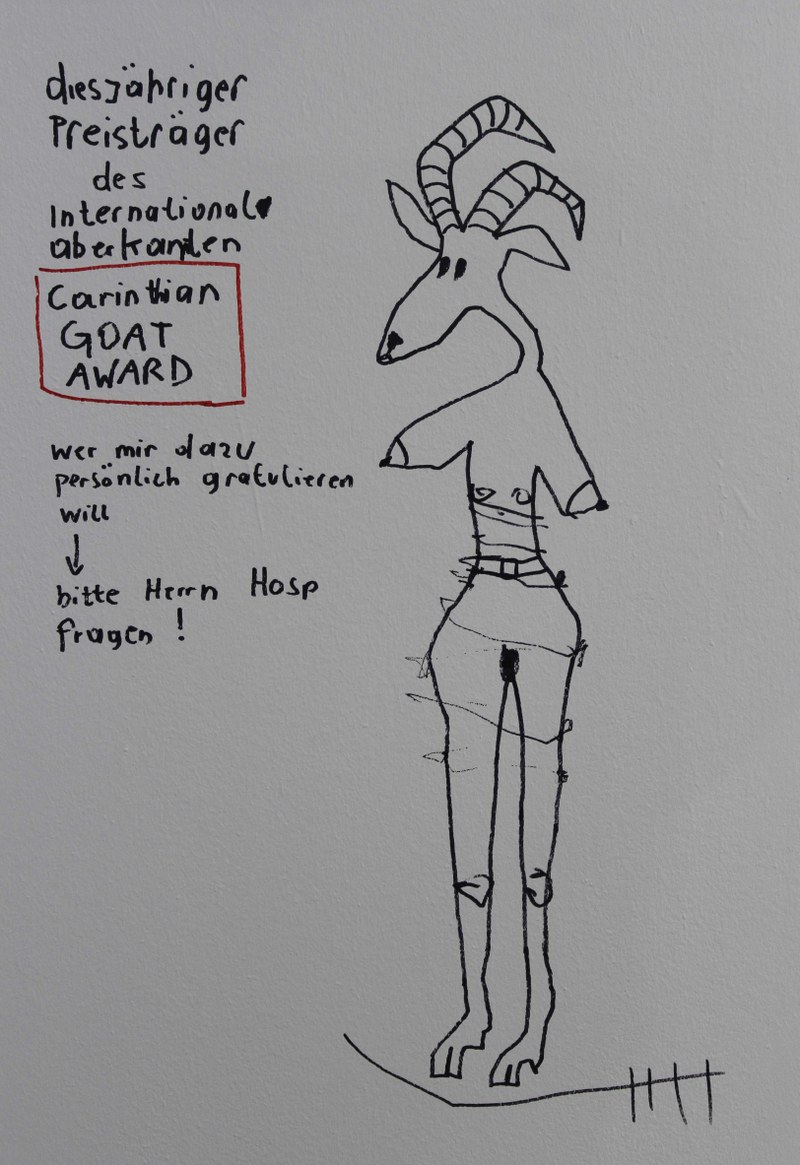 diesjähriger
Preisträger
des
International
aberkannten
Carinthian
GOAT
AWARD
wer mir dazu
persönlich gratulieren
will
↓
bitte Herrn Hosp
fragen !